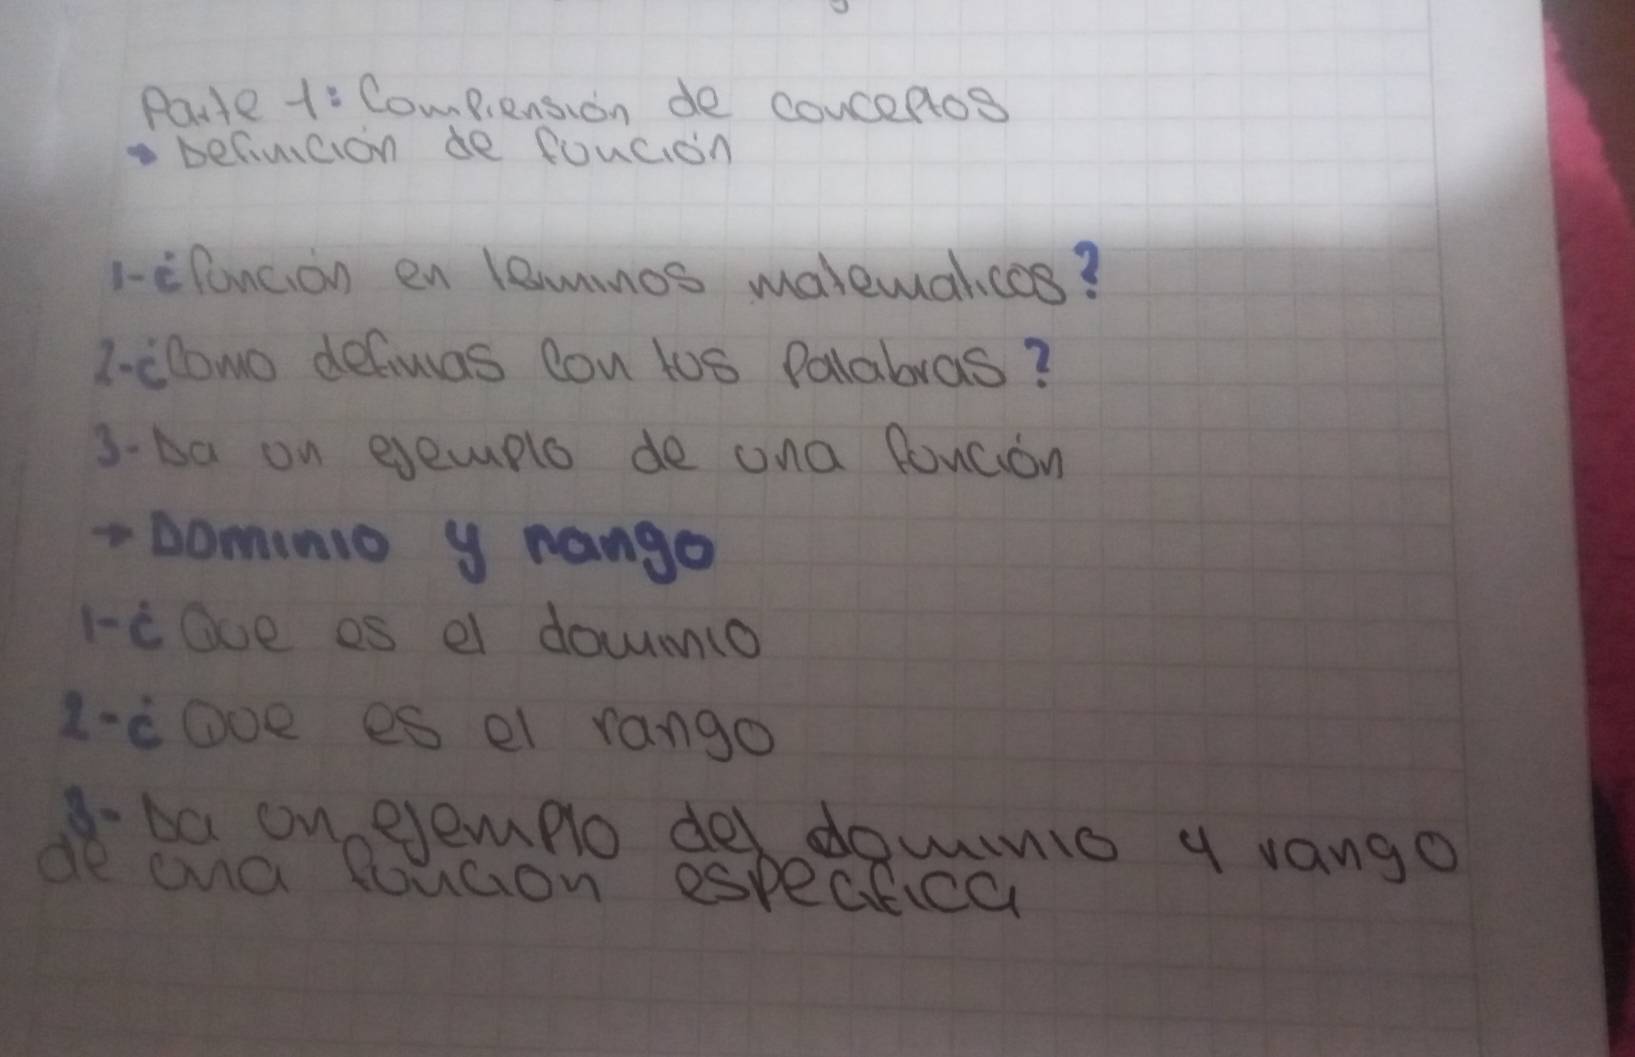 Parte 1: Comprensión de conceptos
→ Definición de función
1-¿función en terminos matematicos?
2-¿Como definias con tus Palabras?
3-Da un ejemplo de una función
→ Dominio y rango
1-¿Que es el dominio
2-¿Que es el rango
3-Da un ejemplo del dominio y rango
de una funcion especifica